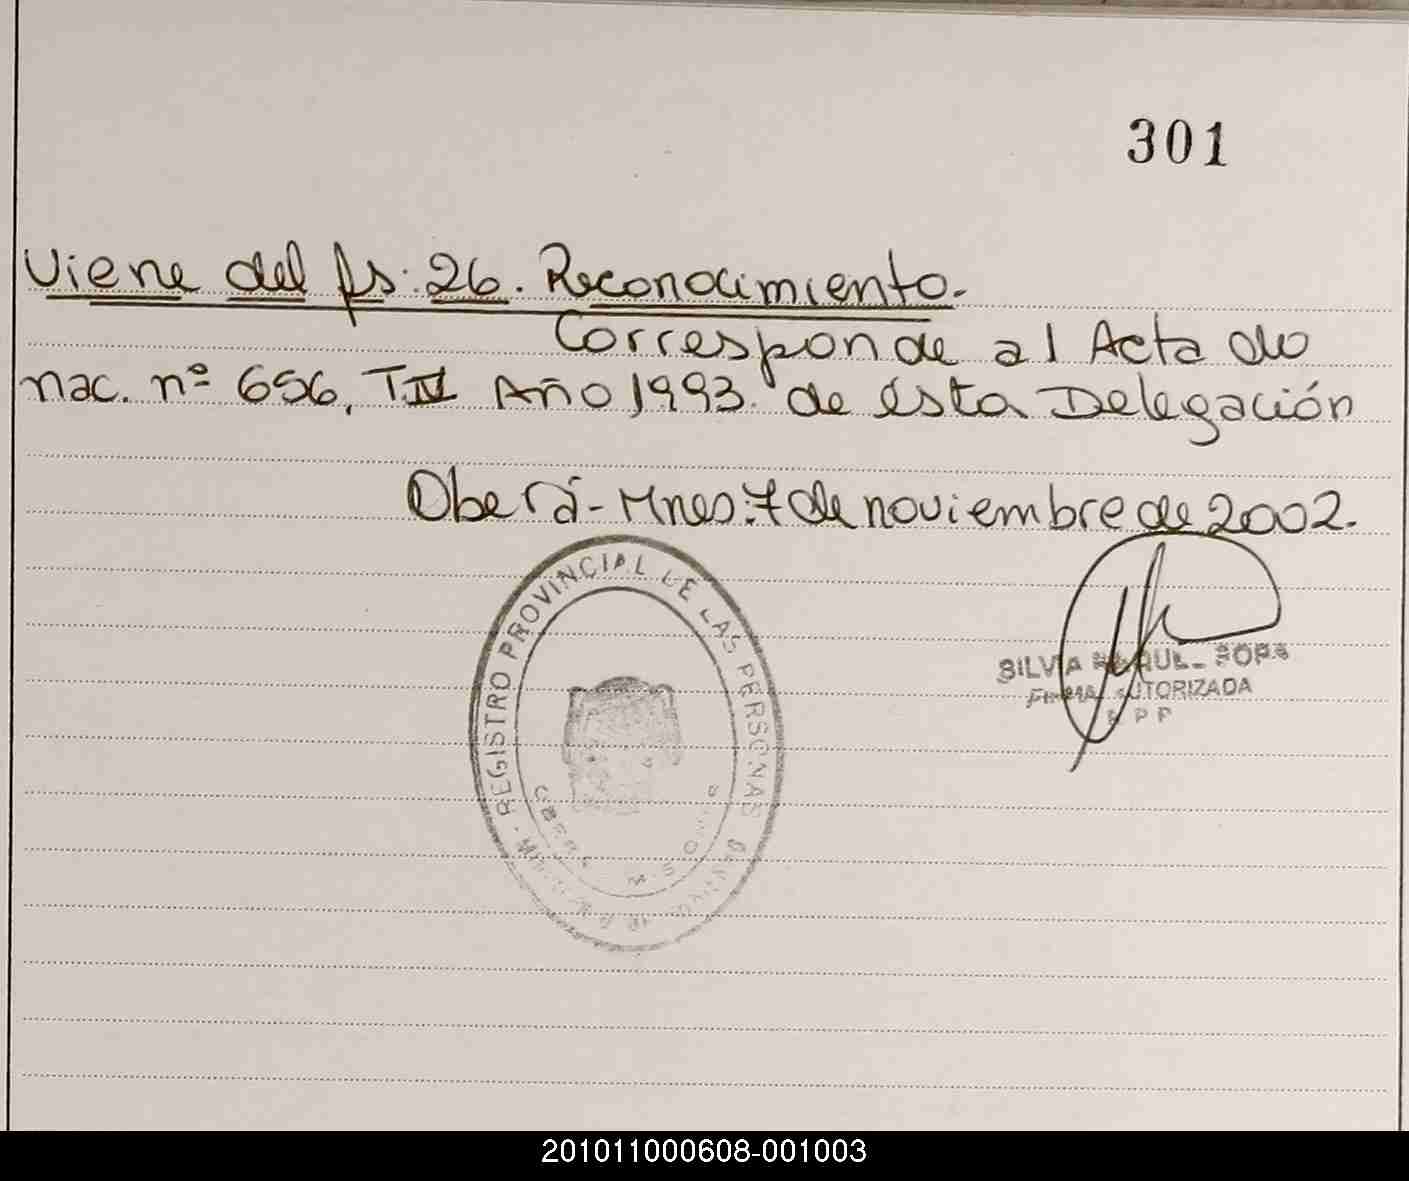 301
Viene del fs. 26. Reconocimiento.
Corresponde al Acta de
nac. nº 656, T.IV Año 1993. de ésta Delegación
Oberá - Mnes: 7 de noviembre de 2002.
REGISTRO PROVINCIAL DE LAS PERSONAS
OBERA
SILVIA
FIRMA AUTORIZADA
201011000608-001003